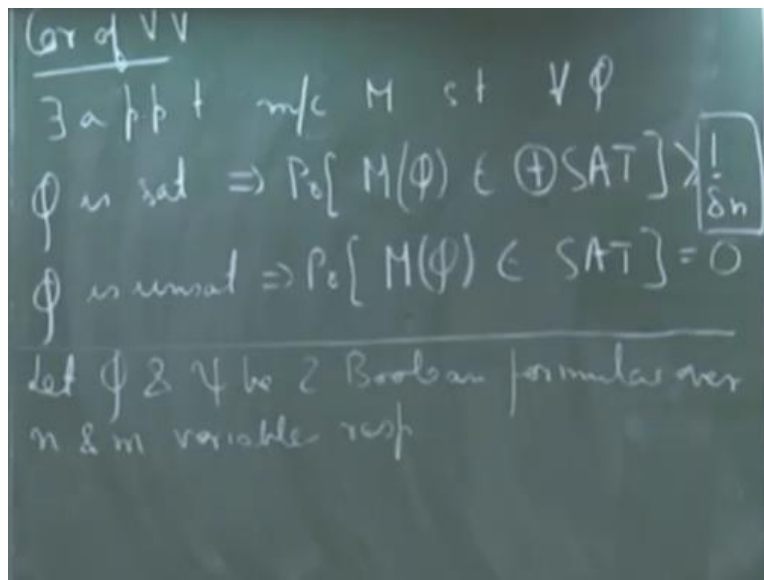 Cor of VV
∃ a p p t m/c M st ∀ φ
φ is sat ⇒ Pr[ M(φ) ∈ ⊕SAT] > 1/8n
φ is unsat ⇒ Pr[ M(φ) ∈ SAT] = 0
Let φ & ψ be 2 Boolean formulas over
n & m variables resp